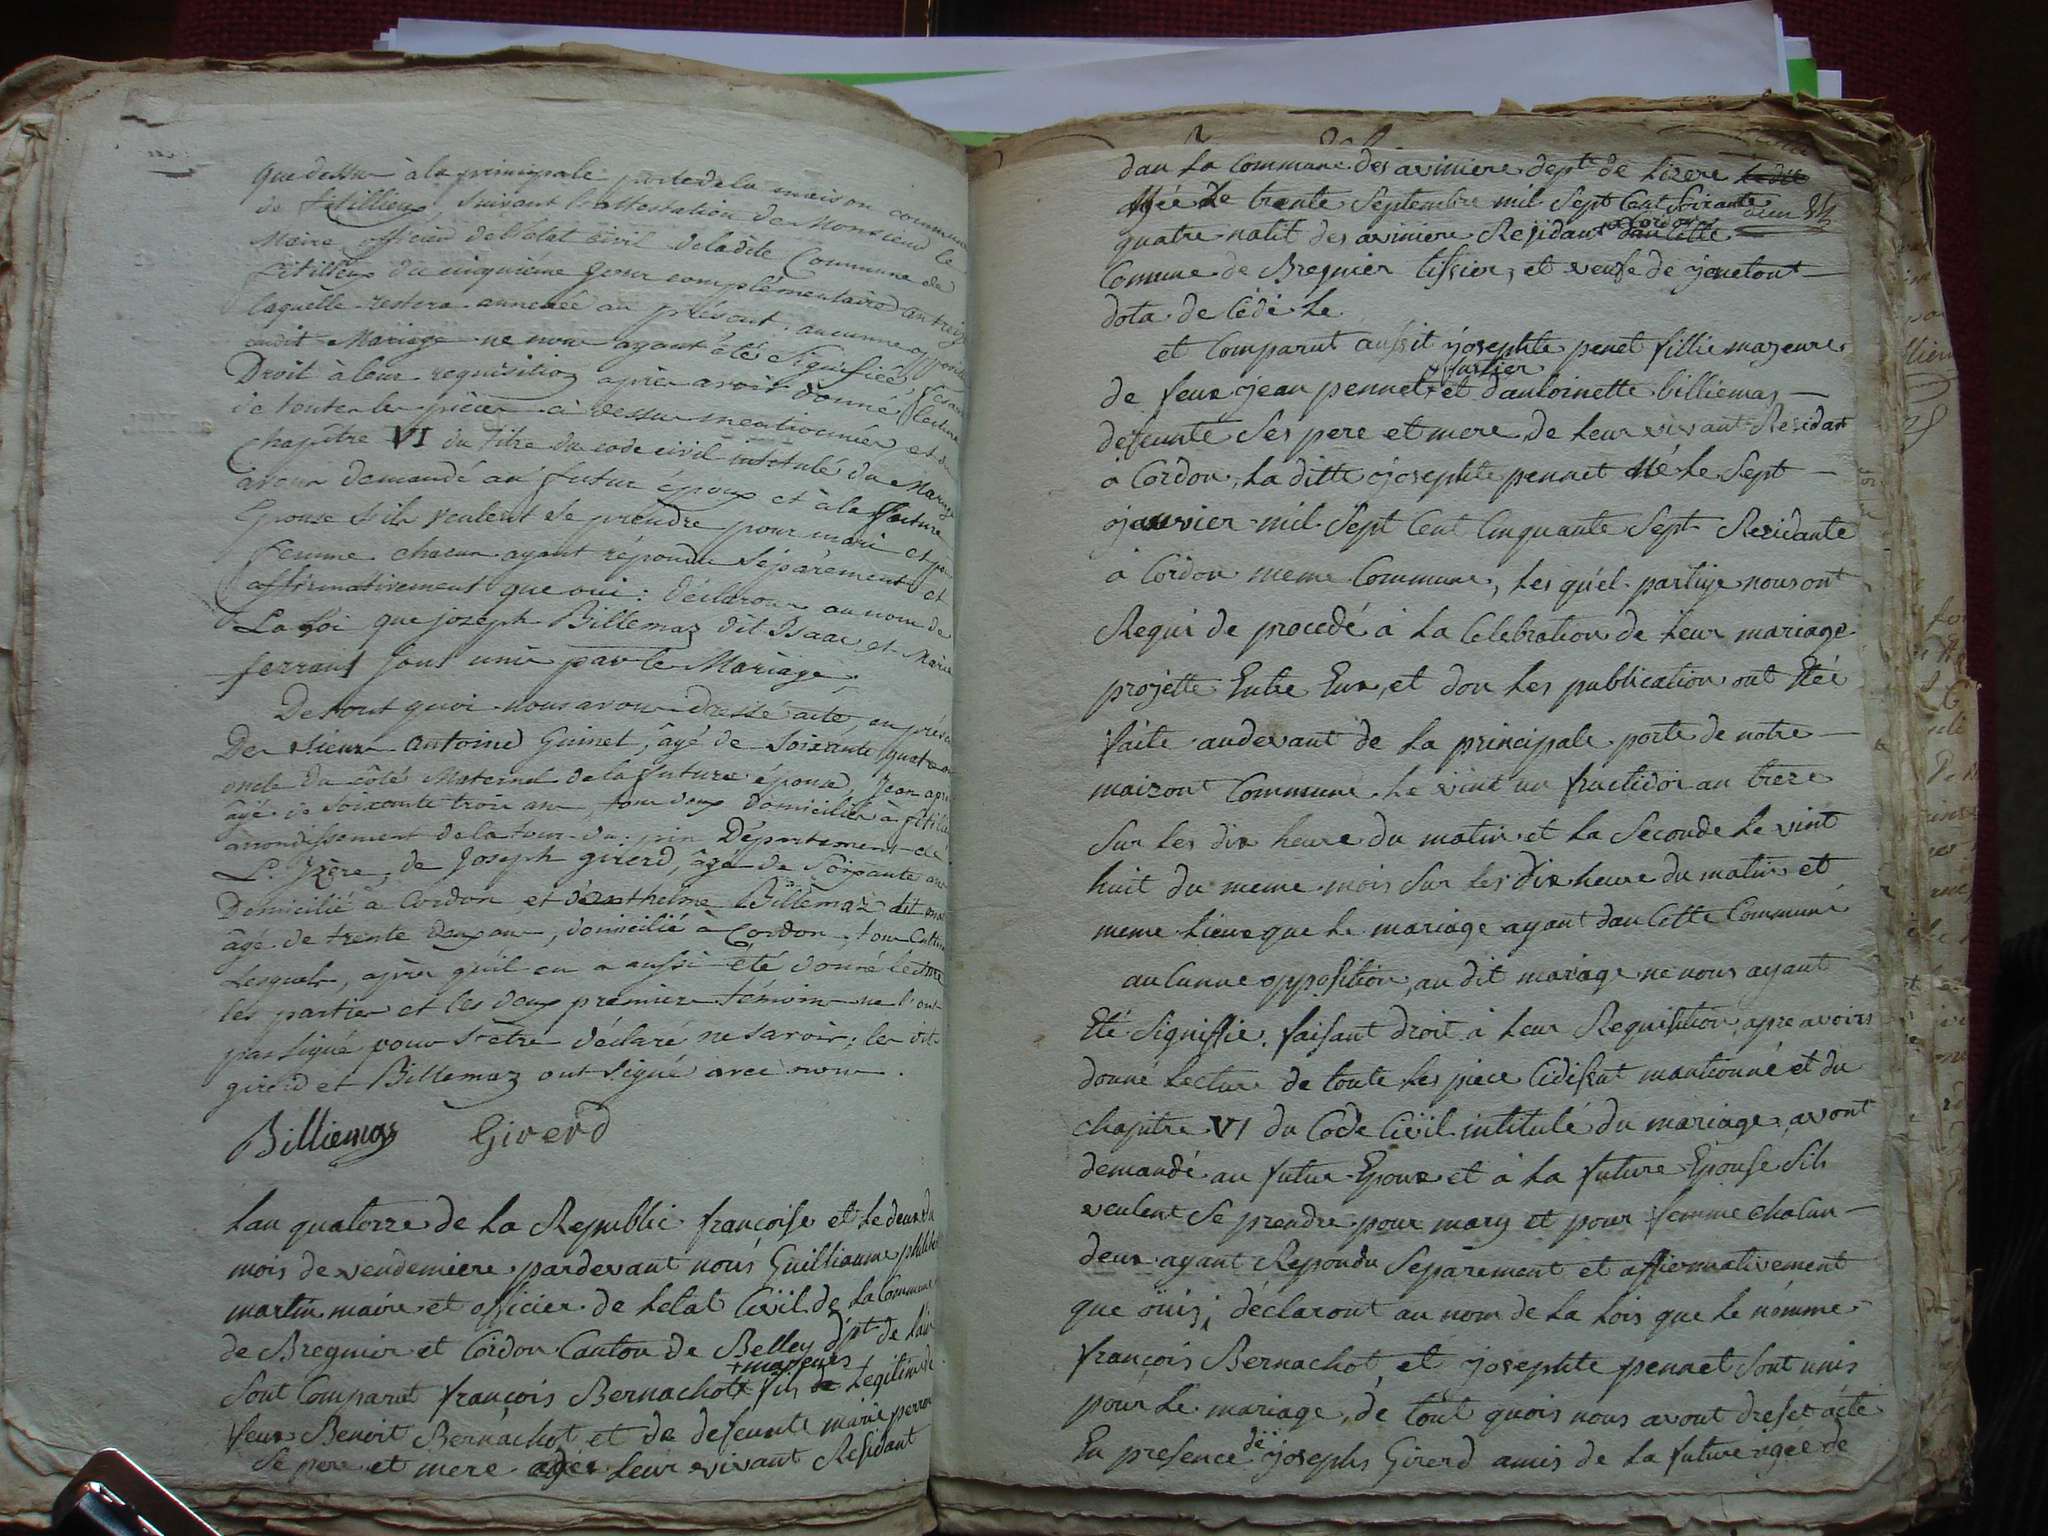 que dessus à la principale porte de la maison commune
de fitillieux, suivant l'attestation de Monsieur le
Maire officier de l'etat civil de la dite Commune de
fitillieux du cinquième jour complémentaire an treize
laquelle restera annexée au présent. aucunne opposition
audit Mariage ne nous ayant été Signifiée, faisant
Droit à leur requisition après avoir donné lecture
de toutes les pièces ci dessus mentionnées et du
chapitre VI du titre du code civil intitulé du Mariage
avons demandé au futur époux et à la future
Epouse s'ils veulent se prendre pour mari et pour
femme chacun ayant répondu séparément et
affirmativement que oui: déclarons au nom de
La Loi que joseph Billemaz dit Isaac et Marie
ferrant sont unis par le Mariage,
De tout quoi nous avons dressé acte, en présence
De sieur antoine Guinet, âgé de Soixante quatre ans
oncle du côté Maternel de la future épouse, Jean
âgé de Soixante trois ans, tous deux domiciliés à fitillieux
arrondissement de la tour-du-pin Département de
L'Izère, de Joseph girerd, âgé de Soixante ans
Domicilié à Cordon et d'anthelme Billemaz dit
âgé de trente deux ans, domicilié à Cordon, tous
Lesquels, après qu'il en a aussi été donné lecture
les parties et les deux premiers témoins ne l'ont
pas signé pour s'être déclaré ne savoir; les dits
girerd et Billemaz ont signé avec nous.
Billiemaz Girerd
Lan quatorze de La Republic françoise et le deux du
mois de vendemiere pardevant nous Guilliaume philibert
martin maire et officier de Letat Civil de La Commune
de Bregnier et Cordon Canton de Belley dpt de Lain
+ majeurs
Sont Comparut françois Bernachot fils de Legitime de
feux Benoit Bernachot et de defeunte marie perron
Se pere et mere agée leur vivant Residant
dan La Commune des aviniere dept de Lizere Le dit
Née Le trente Septembre mil Sept Cent Soixante
a Cordon
quatre natif des aviniere Residant dan Cette
Comune de Bregnier tissier, et veuf de
dota de
et Comparut aussit josephte penet fillie mazeure
de feux jean pennet et dantoinette billiemas
defeunté Ses pere et mere de Leur vivant Residant
a Cordon, La ditte josephte pennet Né Le Sept
janvier mil Sept Cent Cinquante Sept Residante
a Cordon meme Commune, Les quel partije nous ont
Requi de procedé à La Celebration de Leur mariage
projetté Entre Eux, et don Les publication ont Etée
faite audevant de La principale porte de notre
maizont Commune Le vint un fructidor an treze
Sur Les dix heure du matin et La Seconde Le vint
huit du meme mois Sur Les dix heure du matin et
meme Lieux que Le mariage ayant dan Cette Commune
auCunne opposition, au dit mariage ne nous ayant
Eté Signiffie, faisant droit à Leur Requisition, apre avoirs
donné Lecture de toute Les piece Cidissut mantionné et du
chapitre VI du Code Civil intitulé du mariage, avont
demandé au futur Epoux et à La future Epouse Sils
veulent Se prendre pour mary et pour femme chaCun
deux ayant Repondu Separement et affirmativement
que ouis; déclaront au nom de La Lois que Le nommé
françois Bernachot, et josephte pennet Sont unis
pour Le mariage, de tout quois nous avont dreset acte
En presence de josephs Girerd amis de La future agée de